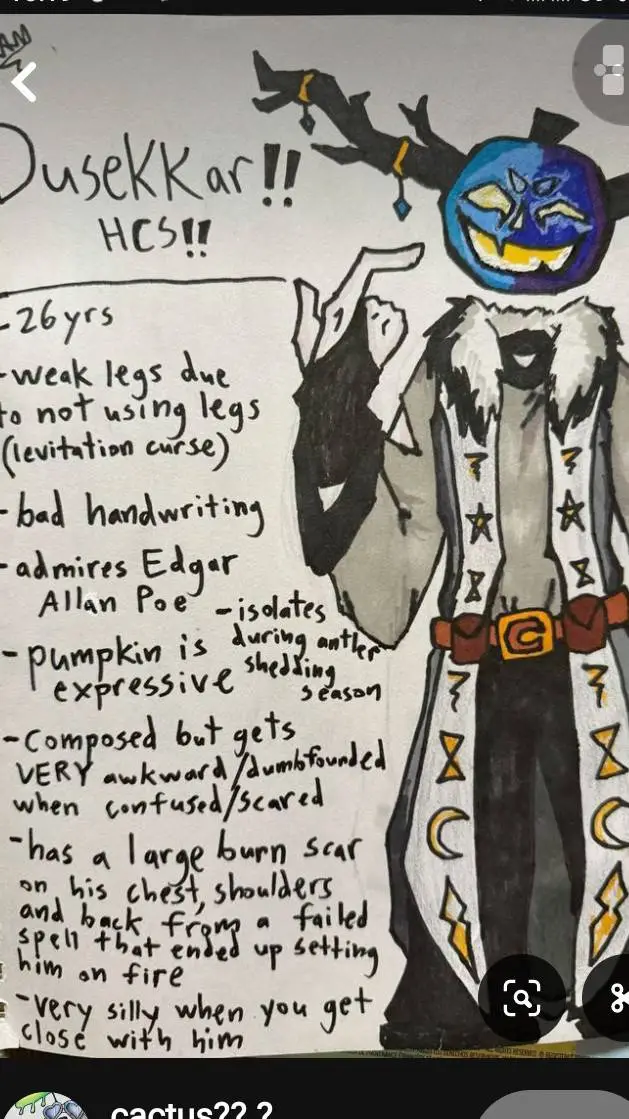 Dusekkar!!
HCS!!
-26yrs
-weak legs due
to not using legs
(levitation curse)
-bad handwriting
-admires Edgar
Allan Poe
-isolates
during antler
shedding
season
-pumpkin is
expressive
-composed but gets
VERY awkward/dumbfounded
when confused/scared
-has a large burn scar
on his chest, shoulders
and back from a failed
spell that ended up setting
him on fire
-very silly when you get
close with him
C
cactus22.2